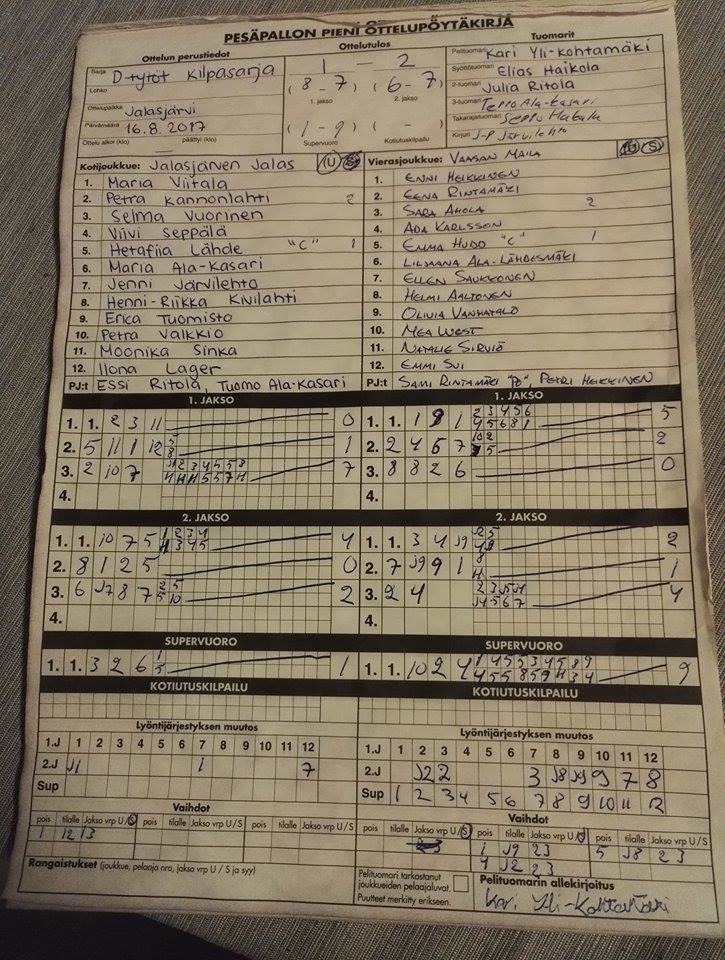 PESÄPALLON PIENI OTTELUPÖYTÄKIRJA
Ottelun perustiedot
Sarja D-tytöt Kilpasarja
Lohko
Ottelupaikka Jalasjärvi
Päivämäärä 16.8.2017
Ottelu alkoi (klo) päättyi (klo)
Ottelutulos
1 – 2
(8-7) (6-7)
1. jakso 2. jakso
(1-9) ( - )
Supervuoro Kotiutuskilpailu
Tuomarit
Pelituomari Kari Yli-Kohtamäki
Syöttötuomari Elias Haikola
2-tuomari Julia Ritola
3-tuomari Teppo Ala-Kasari
Takarajatuomari Seppo
Kirjuri J-P Järvilehto
Kotijoukkue: Jalasjärven Jalas U S
1. Maria Viitala
2. Petra Kannonlahti 2
3. Selma Vuorinen
4. Viivi Seppälä
5. Hetafiia Lähde "C" 1
6. Maria Ala-Kasari
7. Jenni Järvilehto
8. Henni-Riikka Kivilahti
9. Erica Tuomisto
10. Petra Valkkio
11. Moonika Sinka
12. Ilona Lager
PJ:t Essi Ritola, Tuomo Ala-Kasari
Vierasjoukkue: VAASAN MAILA U S
1. ENNI HEIKKINEN
2. EENA RINTAMÄKI
3. SARA AHOLA 2
4. ADA KARLSSON
5. EMMA HUDD "C" 1
6. LILJAANA ALA-LÄHDESMÄKI
7. ELLEN SAUKKONEN
8. HELMI AALTONEN
9. OLIVIA VANHATALO
10. MEA WEST
11. NATALIE SIRVIÖ
12. EMMI SUI
PJ:t SAMI RINTAMÄKI "PJ", PETRI HEIKKINEN
1. JAKSO
1. 1. 2 3 11 0
2. 5 11 1 12 5 8 1
3. 2 10 7 7
4.
1. JAKSO
1. 1. 1 9 1 2 3 4 5 6 4 5 6 8 1 5
2. 2 4 6 7 10 2 2
3. 8 8 2 6 0
4.
2. JAKSO
1. 1. 10 7 5 1 2 3 4 4 3 4 5 4
2. 8 1 2 5 0
3. 6 J7 8 7 2 5 5 10 2
4.
2. JAKSO
1. 1. 3 4 J9 2
2. 7 J9 9 1 8 11 1
3. 2 4 4
4.
SUPERVUORO
1. 1. 3 2 6 1 5 1
SUPERVUORO
1. 1. 10 2 4 9
KOTIUTUSKILPAILU
KOTIUTUSKILPAILU
Lyöntijärjestyksen muutos
1.J 1 2 3 4 5 6 7 8 9 10 11 12
2.J J1 1 7
Sup
Lyöntijärjestyksen muutos
1.J 1 2 3 4 5 6 7 8 9 10 11 12
2.J J2 2 3 J8 J9 9 7 8
Sup 1 2 3 4 5 6 7 8 9 10 11 12
Vaihdot
pois tilalle Jakso vrp U/S pois tilalle Jakso vrp U/S pois tilalle Jakso vrp U/S
1 12 1 3
Vaihdot
pois tilalle Jakso vrp U/S pois tilalle Jakso vrp U/S pois tilalle Jakso vrp U/S
1 J9 2 3 5 J8 2 3
4 J2 2 3
Rangaistukset (joukkue, pelaaja nro, jakso vrp U / S ja syy)
Pelituomari tarkastanut
joukkueiden pelaajaluvat.
Puutteet merkitty erikseen.
Pelituomarin allekirjoitus
Kari Yli-Kohtamäki